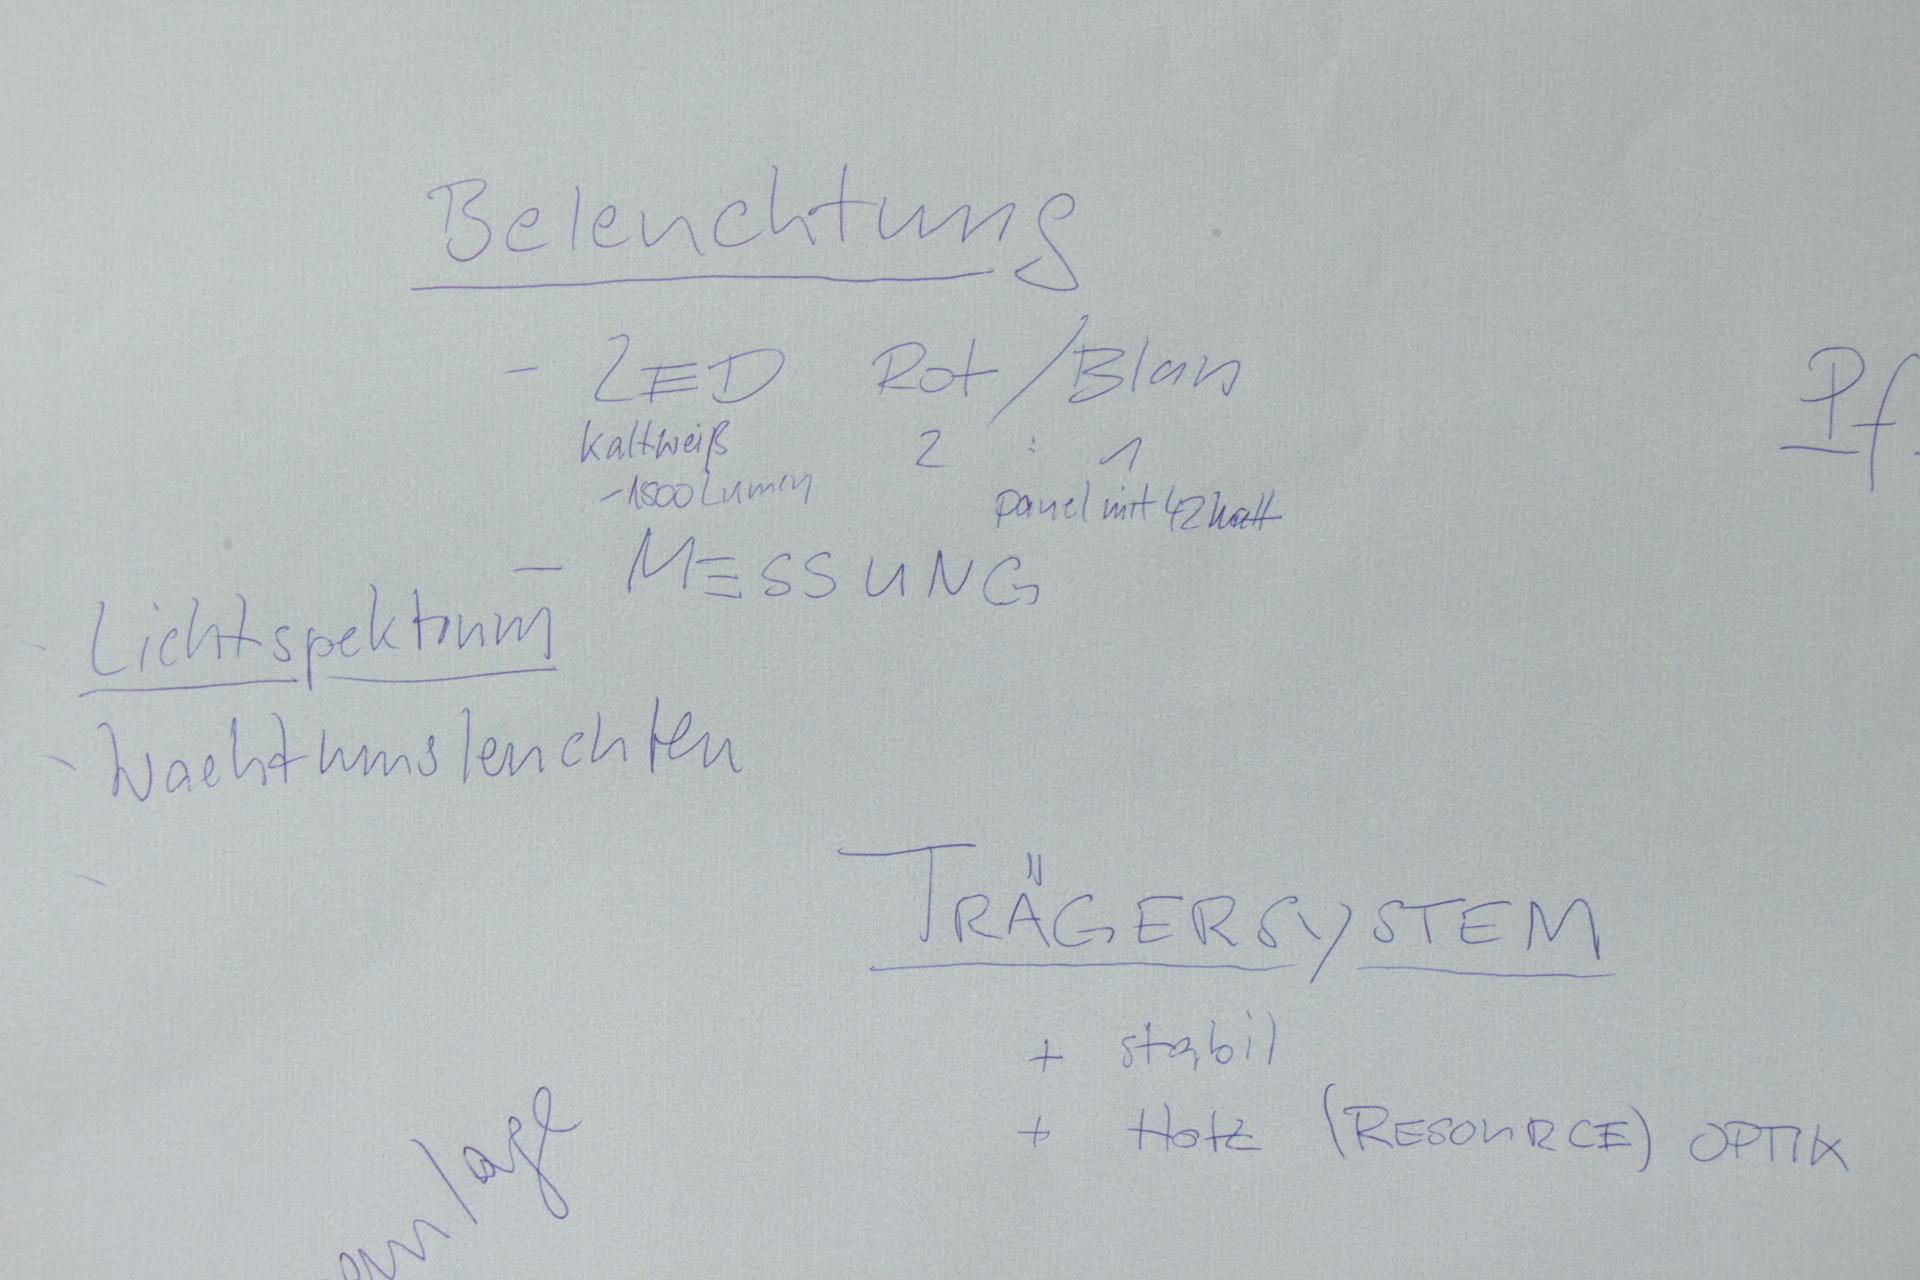 Beleuchtung
- LED Rot / Blau
kaltweiß 2 : 1
~1800 Lumen
Panel mit 42 Watt
- MESSUNG
Lichtspektrum
- Wachtumsleuchten
-
TRÄGERSYSTEM
+ stabil
+ Holz (RESOURCE) OPTIK
Pf
anlage